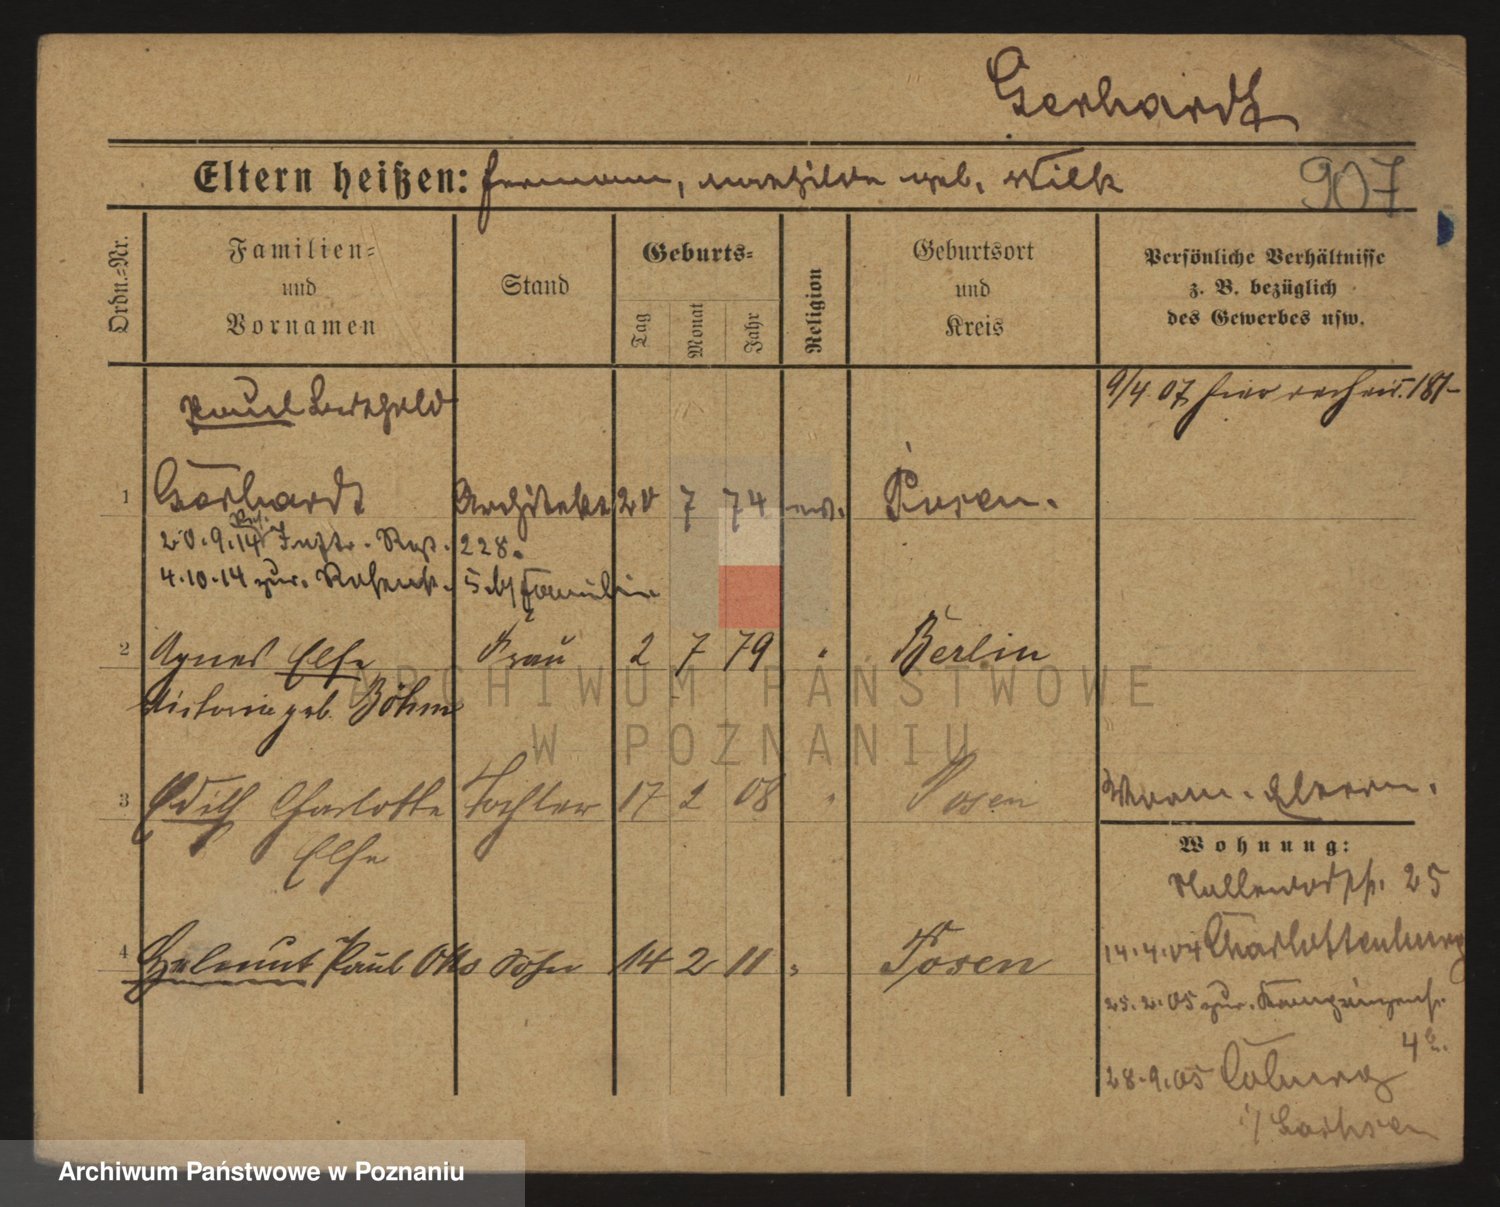 Gerhardt
Eltern heißen: Hermann, Mathilde geb. Wilk
907
Ordn.-Nr.
Familien-
und
Vornamen
Stand
Geburts-
Tag
Monat
Jahr
Religion
Geburtsort
und
Kreis
Persönliche Verhältnisse
z. B. bezüglich
des Gewerbes usw.
Paul Berthold
9/4 07 hier
1 Gerhardt Architekt 20 7 74 Posen.
20.9.14 Inftr. Reg. 228.
4.10.14 zur. 5 b/ Familie
2 Agnes Else Frau 2 7 79 " Berlin
Victoria geb. Böhm
3 Edith Charlotte Tochter 17 2 08 " Posen
Else
4 Helmut Paul Otto Sohn 14 2 11 " Posen
Wohnung:
25
14.4.04 Charlottenburg
25.2.05 zur. Kronprinzenstr.
4
28.9.05 Coburg
i/ Sachsen
ARCHIWUM PAŃSTWOWE
W POZNANIU
Archiwum Państwowe w Poznaniu